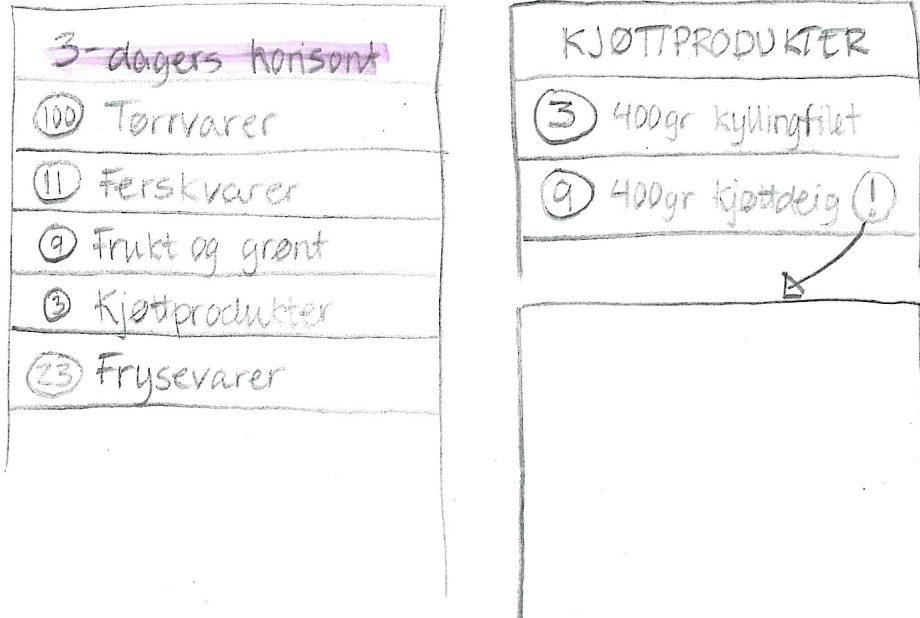 3-dagers horisont
100 Tørrvarer
11 Ferskvarer
9 Frukt og grønt
3 Kjøttprodukter
23 Frysevarer
KJØTTPRODUKTER
3 400gr kyllingfilet
9 400gr kjøttdeig !